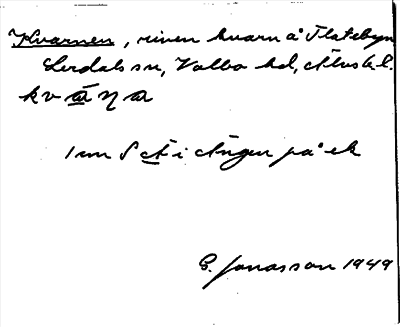 Kvarnen, riven kvarn å Flatebyn
Lerdals sn, Valbo hd, Älvsb. l.
kväṇa
1 mm S Ä i Ängen på ek
E. Jonasson 1949